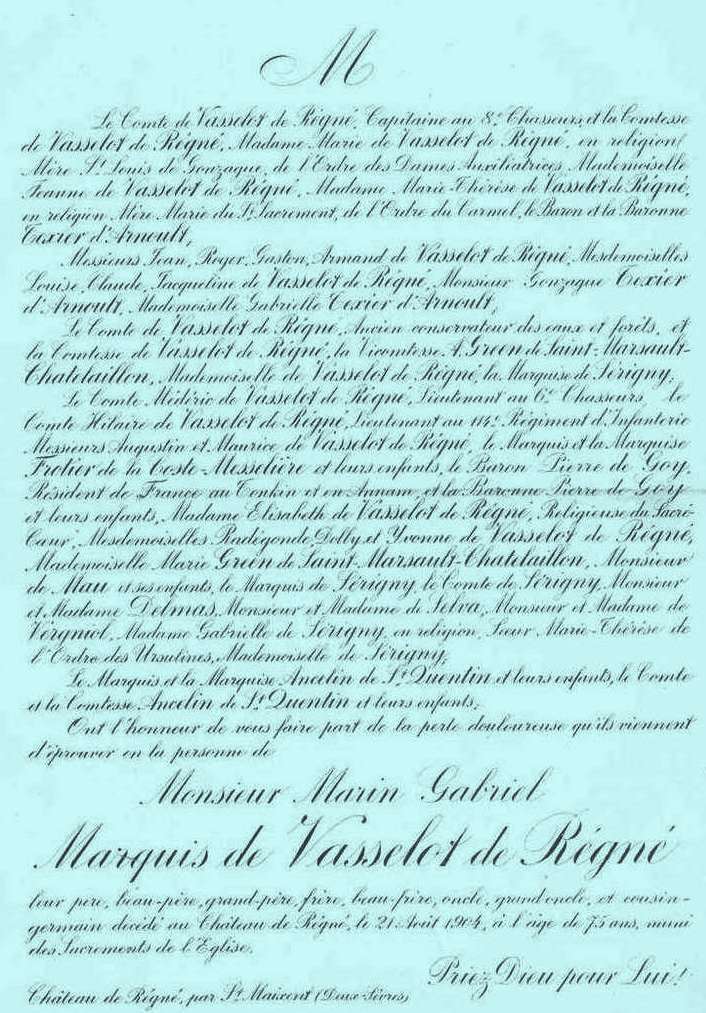 M
Le Comte de Vasselot de Régné, Capitaine au 8e Chasseurs, et la Comtesse
de Vasselot de Régné, Madame Marie de Vasselot de Régné, en religion
Mère St Louis de Gonzague, de l'Ordre des Dames Auxiliatrices, Mademoiselle
Jeanne de Vasselot de Régné, Madame Marie-Thérèse de Vasselot de Régné,
en religion Mère Marie du St Sacrement, de l'Ordre du Carmel, le Baron et la Baronne
Texier d'Arnoult,
Messieurs Jean, Roger, Gaston, Armand de Vasselot de Régné, Mesdemoiselles
Louise, Claude, Jacqueline de Vasselot de Régné, Monsieur Gonzague Texier
d'Arnoult, Mademoiselle Gabrielle Texier d'Arnoult,
Le Comte de Vasselot de Régné, Ancien conservateur des eaux et forêts, et
la Comtesse de Vasselot de Régné, la Vicomtesse A. Green de Saint-Marsault-
Chatelaillon, Mademoiselle de Vasselot de Régné, la Marquise de Sérigny;
Le Comte Médéric de Vasselot de Régné, Lieutenant au 6e Chasseurs, le
Comte Hilaire de Vasselot de Régné, Lieutenant au 114e Régiment d'Infanterie
Messieurs Augustin et Maurice de Vasselot de Régné, le Marquis et la Marquise
Frotier de la Coste-Messelière et leurs enfants, le Baron Pierre de Goy,
Résident de France au Tonkin et en Annam, et la Baronne Pierre de Goy
et leurs enfants, Madame Elisabeth de Vasselot de Régné, Religieuse du Sacré-
Cœur, Mesdemoiselles Radégonde, Dolly et Yvonne de Vasselot de Régné,
Mademoiselle Marie Green de Saint-Marsault-Chatelaillon, Monsieur
de Mau et ses enfants, le Marquis de Sérigny, le Comte de Sérigny, Monsieur
et Madame Delmas, Monsieur et Madame de Selva, Monsieur et Madame de
Vergniol, Madame Gabrielle de Sérigny, en religion, Sœur Marie-Thérèse de
l'Ordre des Ursulines, Mademoiselle de Sérigny;
Le Marquis et la Marquise Ancelin de St Quentin et leurs enfants, le Comte
et la Comtesse Ancelin de St Quentin et leurs enfants;
Ont l'honneur de vous faire part de la perte douloureuse qu'ils viennent
d'éprouver en la personne de
Monsieur Marin Gabriel
Marquis de Vasselot de Régné
leur père, beau-père, grand-père, frère, beau-frère, oncle, grand oncle, et cousin-
germain décédé au Château de Régné, le 21 Août 1904, à l'âge de 75 ans, muni
des Sacrements de l'Eglise.
Priez Dieu pour Lui!
Château de Régné, par St Maixent (Deux-Sèvres)